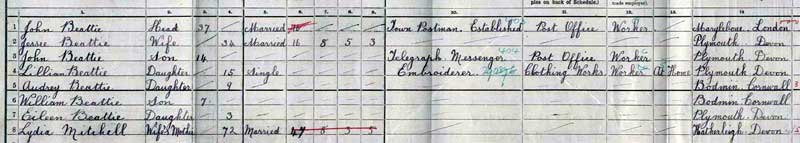 pies on back of Schedule.) made employed.
1. 2. 3. 4. 5. 6. 7. 8. 9. 10. 11. 12. 13. 14.
1 John Beattie Head 37 Married Town Postman. Established Post Office Worker Marylebone London
2 Jessie Beattie Wife 34 Married 16 8 5 3 Plymouth Devon
3 John Beattie Son 14 Telegraph Messenger 404 Post Office Worker Plymouth Devon
4 Lillian Beattie Daughter 15 Single Embroiderer Clothing Works Worker At Home Plymouth Devon
5 Audrey Beattie Daughter 9 Bodmin Cornwall
6 William Beattie Son 7 Bodmin Cornwall
7 Eileen Beattie Daughter 3 Plymouth Devon
8 Lydia Mitchell Wife's Mother 72 Married 47 8 3 5 Hatherleigh Devon